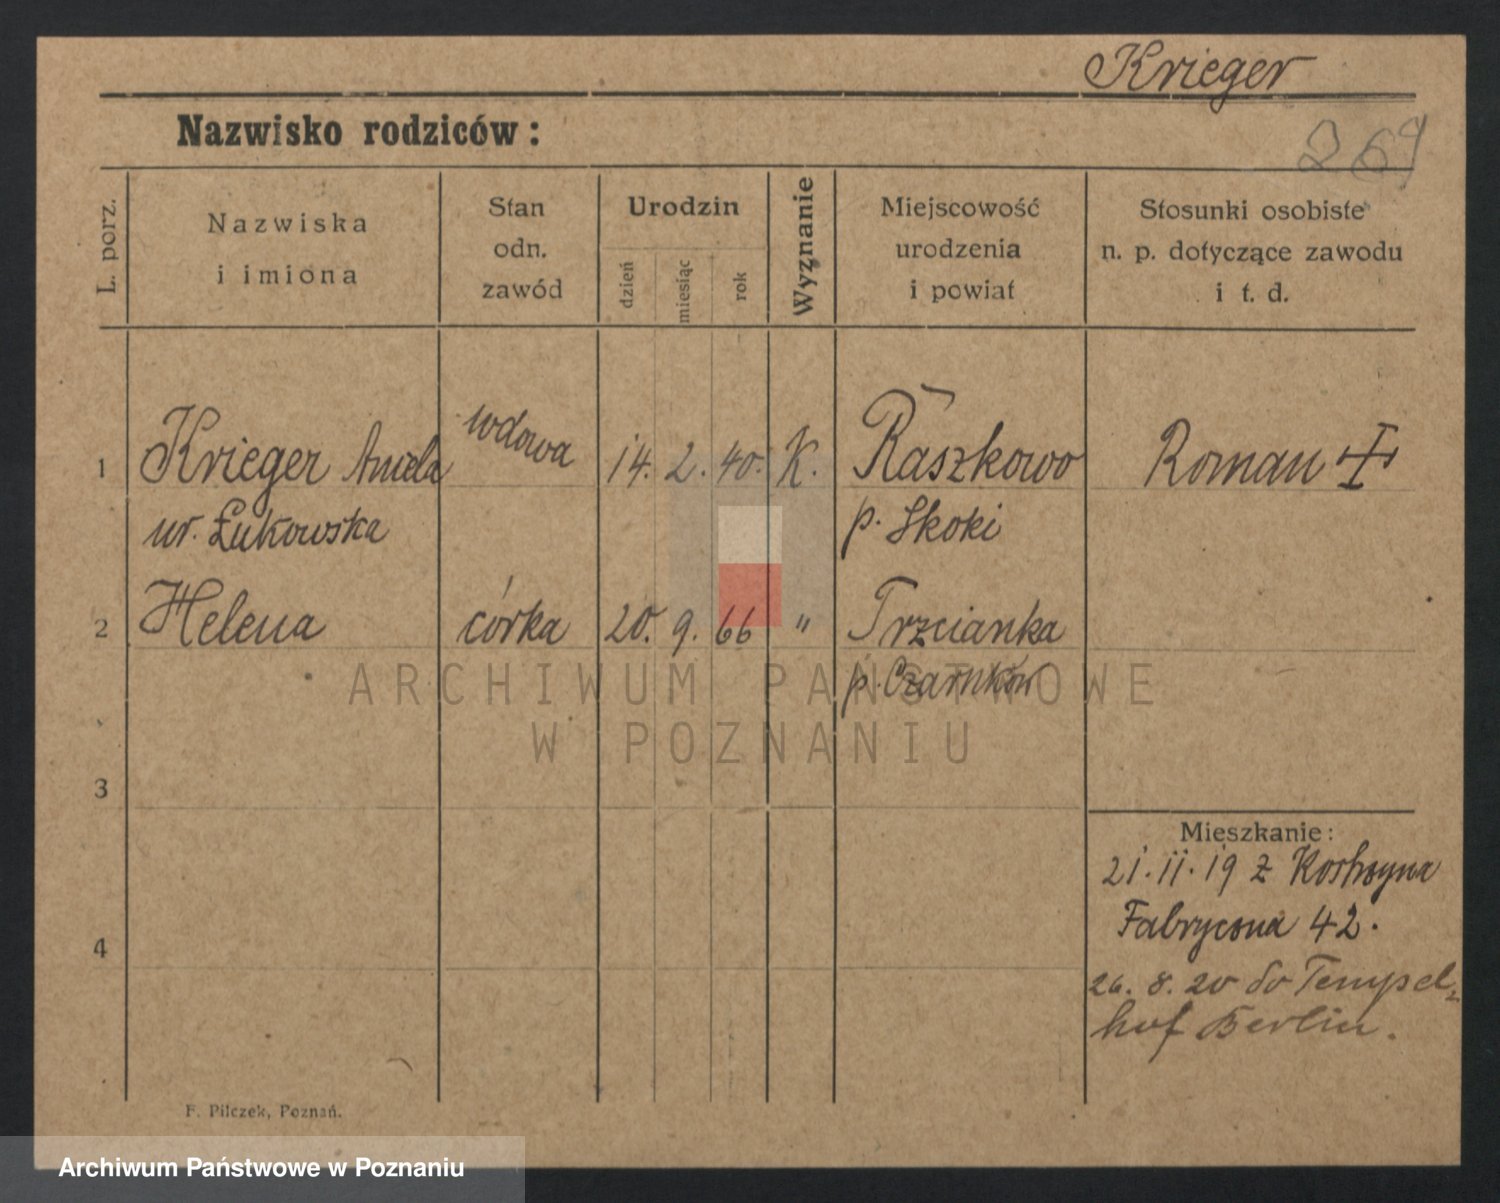 Krieger
269
Nazwisko rodziców:
L. porz.
Nazwiska
i imiona
Stan
odn.
zawód
Urodzin
dzień
miesiąc
rok
Wyznanie
Miejscowość
urodzenia
i powiat
Stosunki osobiste
n. p. dotyczące zawodu
i t. d.
1 Krieger Aniela wdowa 14. 2. 40. K. Raszkowo Roman
ur. Łukowska p. Skoki
2 Helena córka 20. 9. 66 " Trzcianka
p. Czarnków
ARCHIWUM PAŃSTWOWE
W POZNANIU
3
Mieszkanie:
21.II.19 z Kostrzyna
Fabryczna 42.
4
26. 8. 20 do Tempel-
hof Berlin.
F. Pilczek, Poznań.
Archiwum Państwowe w Poznaniu